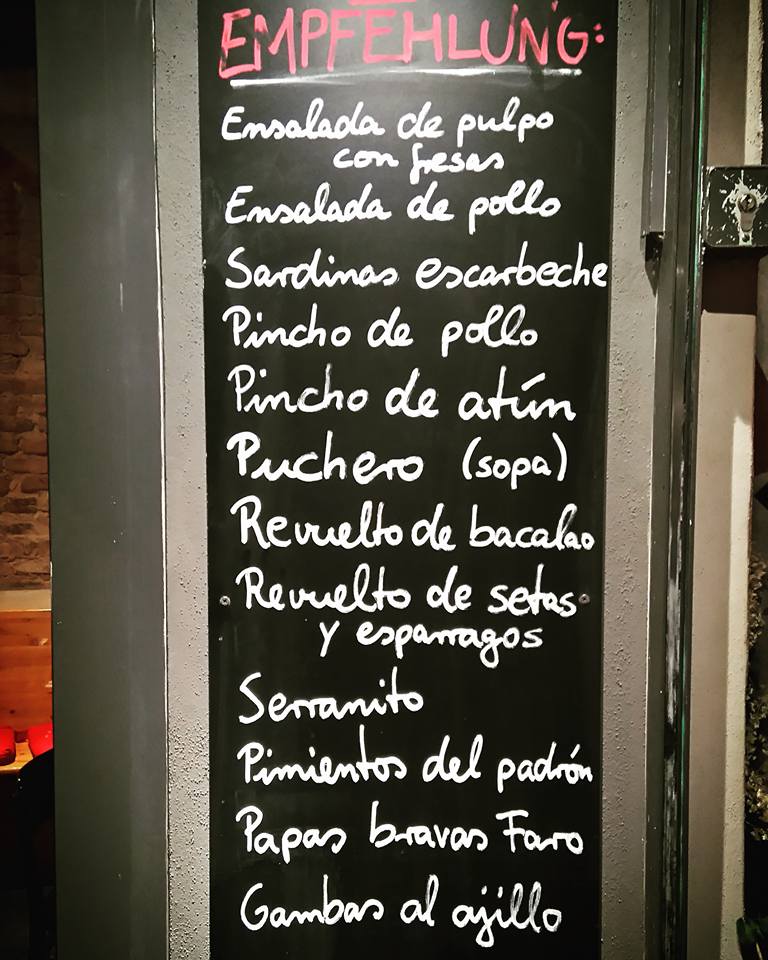 EMPFEHLUNG:
Ensalada de pulpo
con fresas
Ensalada de pollo
Sardinas escarbeche
Pincho de pollo
Pincho de atún
Puchero (sopa)
Revuelto de bacalao
Revuelto de setas
y esparragos
Serranito
Pimientos del padrón
Papas bravas Faro
Gambas al ajillo